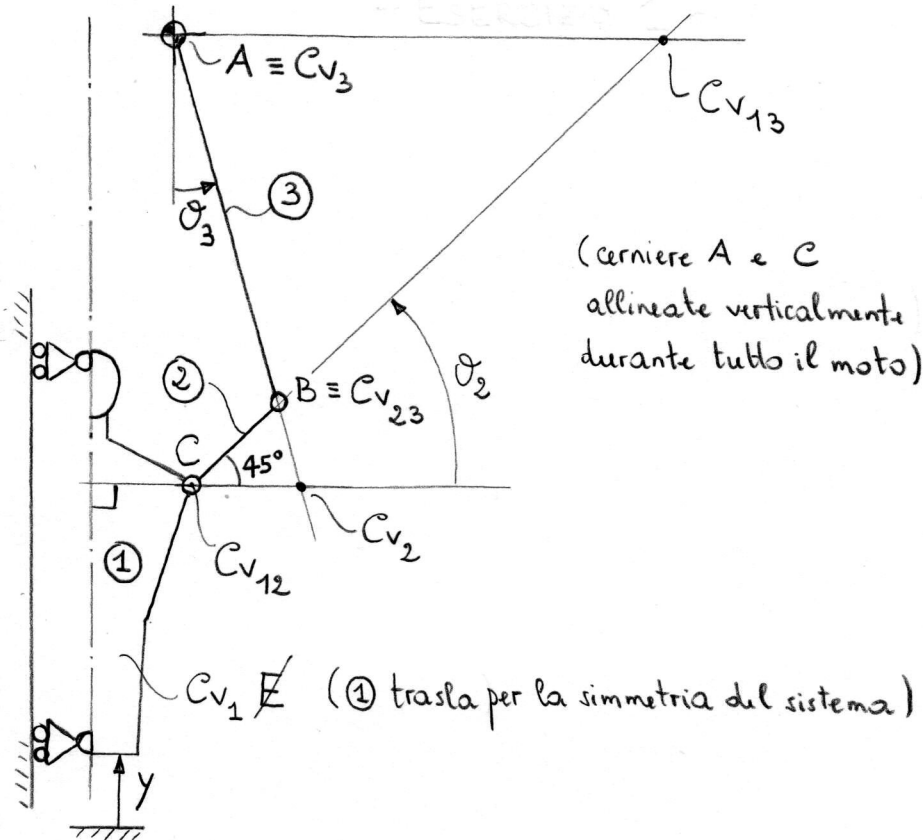 A ≡ Cv₃
Cv₁₃
ϑ₃
③
(cerniere A e C
allineate verticalmente
durante tutto il moto)
②
B ≡ Cv₂₃
ϑ₂
C
45°
Cv₂
①
Cv₁₂
Cv₁ ∄ (① trasla per la simmetria del sistema)
y